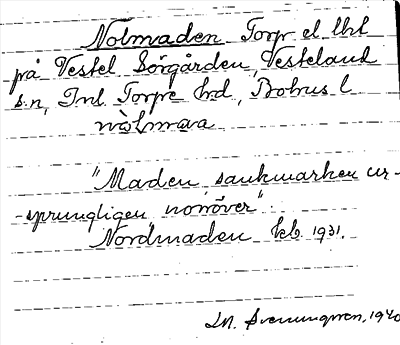 Nolmaden Torp el. lht
på Vestel Sörgården, Vesteland
s:n, Inl. Torpe hd, Bohus l.
nòlmaa
"Maden, sankmarken ur-
-sprungligen norröver".
Nordmaden kb. 1931.
Svenungsson, 1940